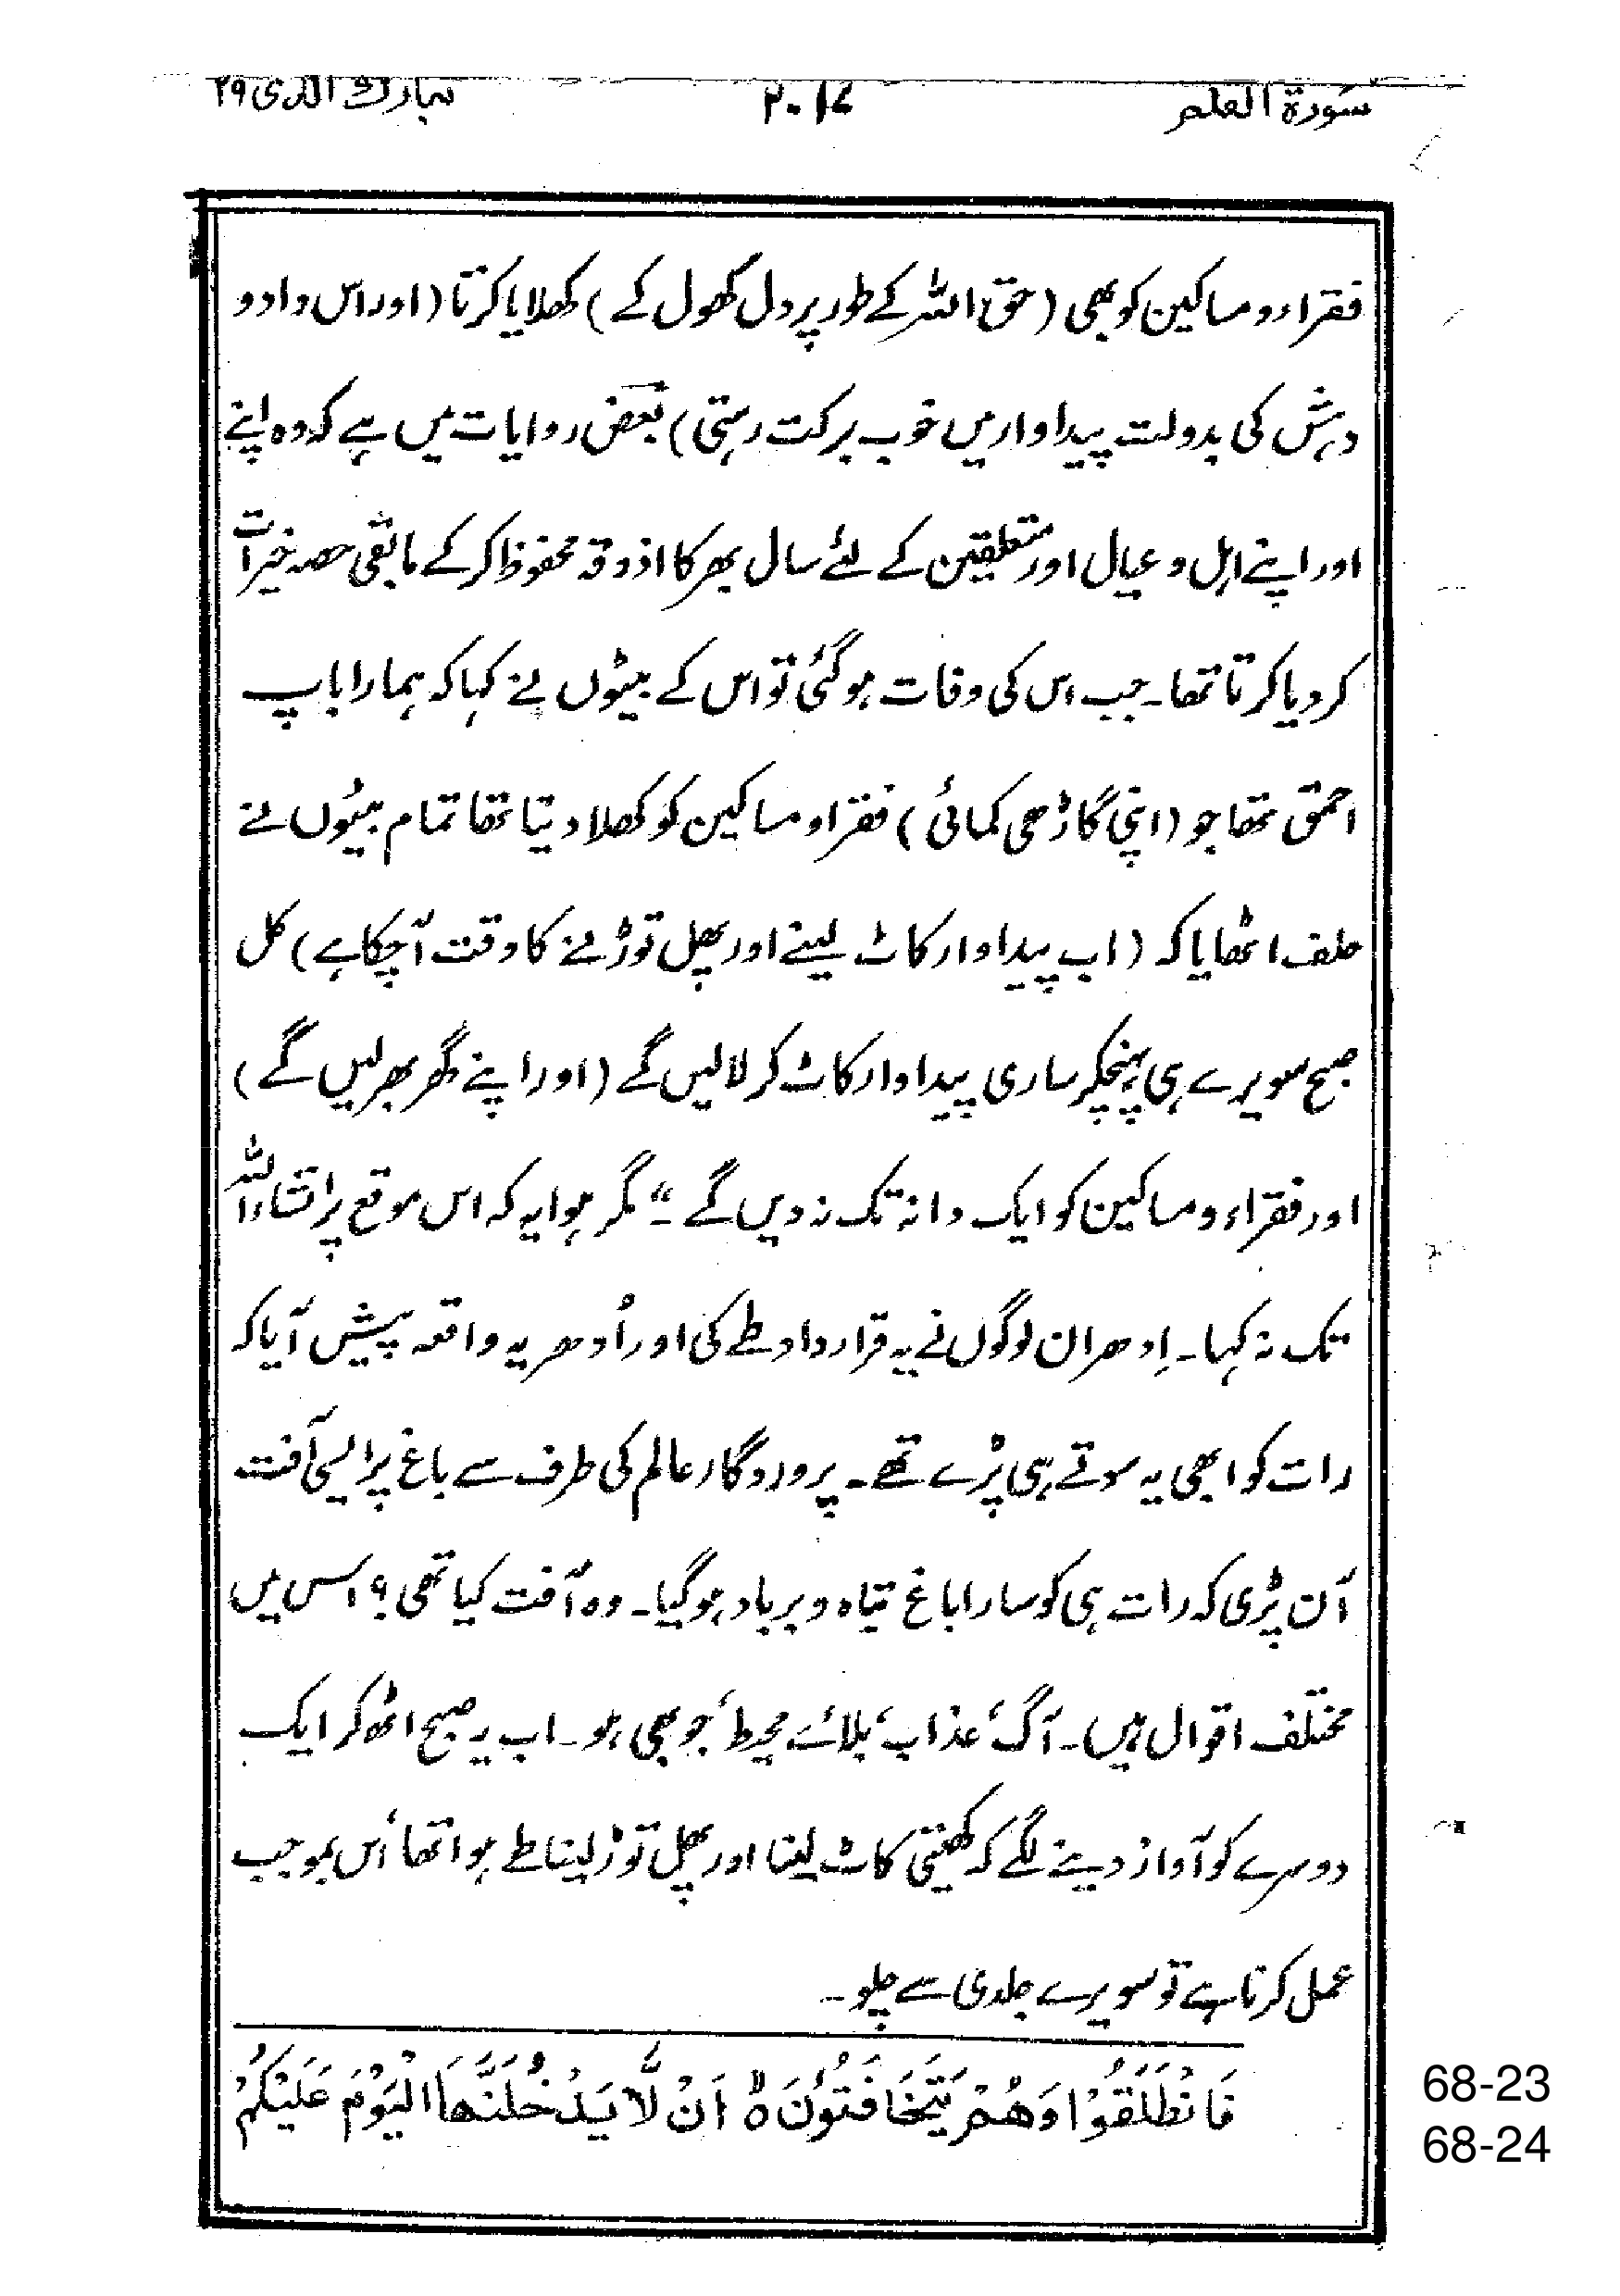 سورة القلم
۲۰۱۷
تبارك الذی ۲۹
فقراء و مساکین کو بھی (حق اللہ کے طور پر دل کھول کے) کھلایا کرتا (اور اس داد و
دہش کی بدولت پیداوار میں خوب برکت رہتی) بعض روایات میں ہے کہ وہ اپنے
اور اپنے اہل و عیال اور متعلقین کے لئے سال بھر کا اذوقہ محفوظ کر کے مابقی حصہ خیرات
کر دیا کرتا تھا۔ جب اس کی وفات ہو گئی تو اس کے بیٹوں نے کہا کہ ہمارا باپ
احمق تھا جو (اپنی گاڑھی کمائی) فقرا و مساکین کو کھلا دیتا تھا تمام بیٹوں نے
حلف اٹھایا کہ (اب پیداوار کاٹ لینے اور پھل توڑنے کا وقت آ چکا ہے) کل
صبح سویرے ہی پہنچکر ساری پیداوار کاٹ کر لالیں گے (اور اپنے گھر بھر لیں گے)
اور فقراء و مساکین کو ایک دانہ تک نہ دیں گے۔“ مگر ہوا یہ کہ اس موقع پر انشاءاللہ
تک نہ کہا۔ اِدھر ان لوگوں نے یہ قرارداد طے کی اور اُدھر یہ واقعہ پیش آیا کہ
رات کو ابھی یہ سوتے ہی پڑے تھے۔ پروردگار عالم کی طرف سے باغ پر ایسی آفت
آن پڑی کہ رات ہی کو سارا باغ تباہ و برباد ہو گیا۔ وہ آفت کیا تھی؟ اس میں
مختلف اقوال ہیں۔ آگ، عذاب، بلائے محیط، جو بھی ہو۔ اب یہ صبح اٹھ کر ایک
دوسرے کو آواز دینے لگے کہ کھیتی کاٹ لینا اور پھل توڑ لینا طے ہوا تھا، اُس بموجب
عمل کرنا ہے تو سویرے جلدی سے چلو۔
فَانْطَلَقُوْا وَهُمْ يَتَخَافَتُوْنَ ۙ اَنْ لَّا يَدْخُلَنَّهَا الْيَوْمَ عَلَيْكُمْ
68-23
68-24